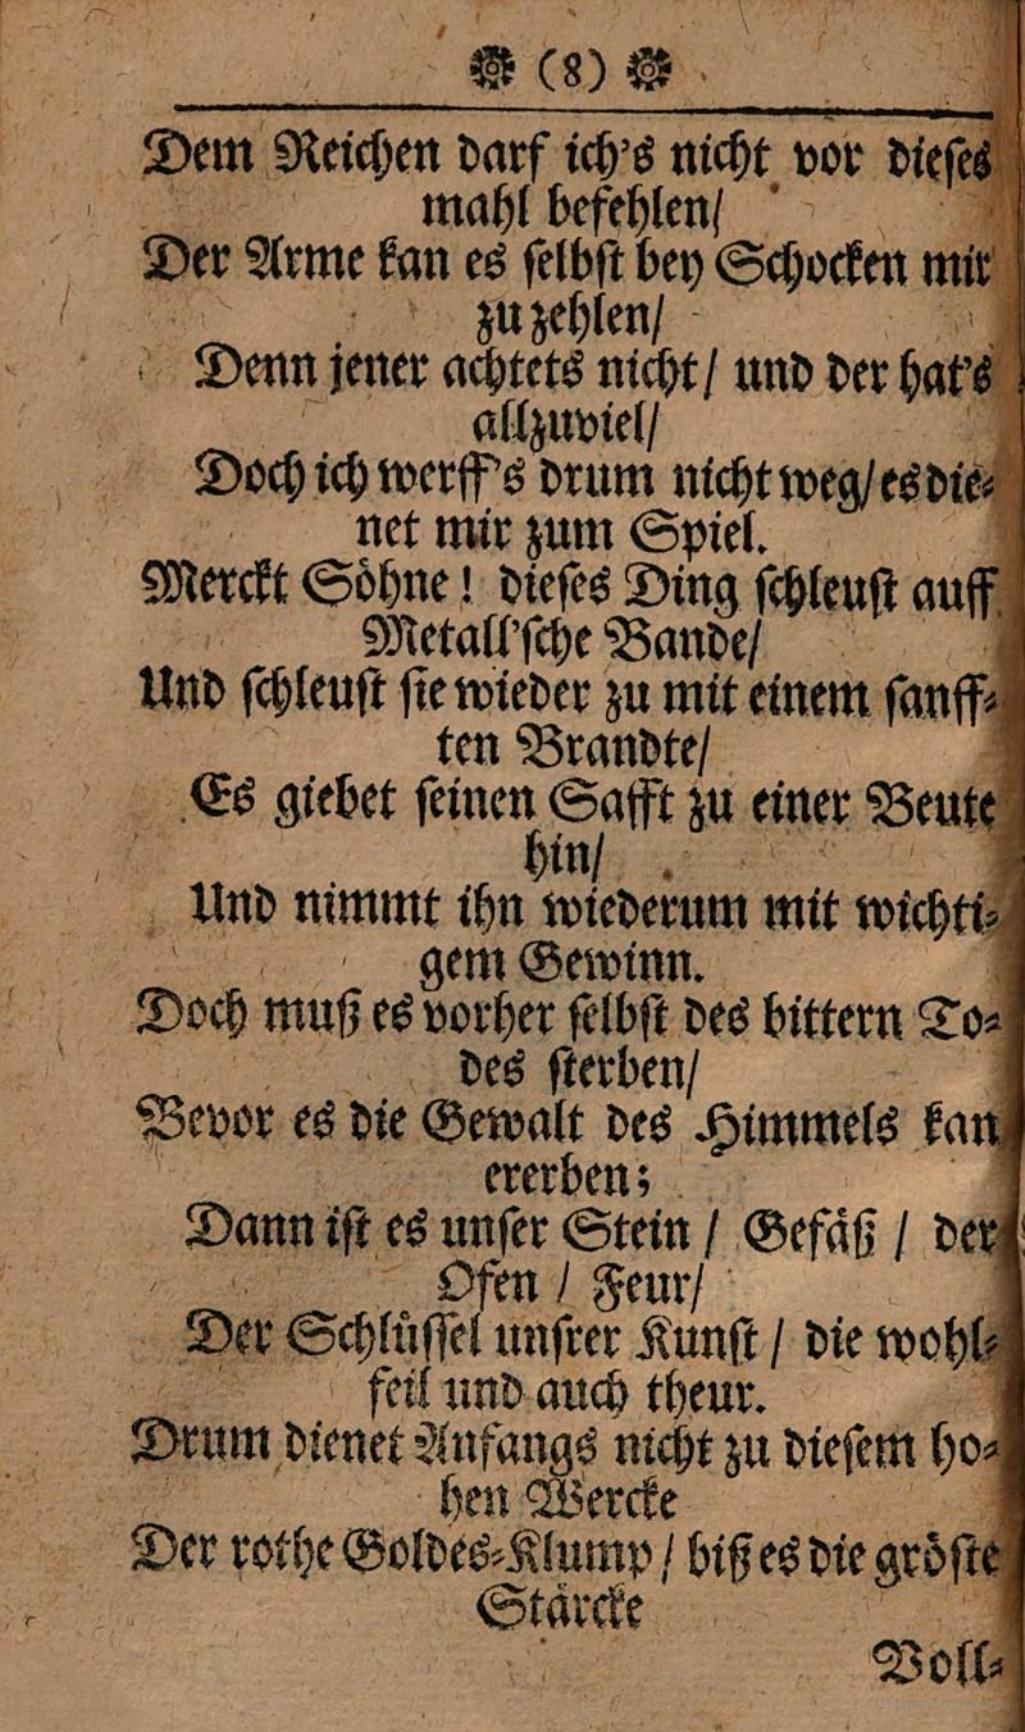 (8)
Dem Reichen darf ich's nicht vor dieses
mahl befehlen/
Der Arme kan es selbst bey Schocken mir
zu zehlen/
Denn jener achtets nicht / und der hat's
allzuviel/
Doch ich werff's drum nicht weg/ es die-
net mir zum Spiel.
Merckt Söhne! dieses Ding schleust auff
Metall'sche Bande/
Und schleust sie wieder zu mit einem sanff-
ten Brandte/
Es giebet seinen Safft zu einer Beute
hin/
Und nimmt ihn wiederum mit wichti-
gem Gewinn.
Doch muß es vorher selbst des bittern To-
des sterben/
Bevor es die Gewalt des Himmels kan
ererben;
Dann ist es unser Stein / Gefäß / der
Ofen / Feur/
Der Schlüssel unsrer Kunst / die wohl-
feil und auch theur.
Drum dienet Anfangs nicht zu diesem ho-
hen Wercke
Der rothe Goldes-Klump / biß es die gröste
Stärcke
Voll-